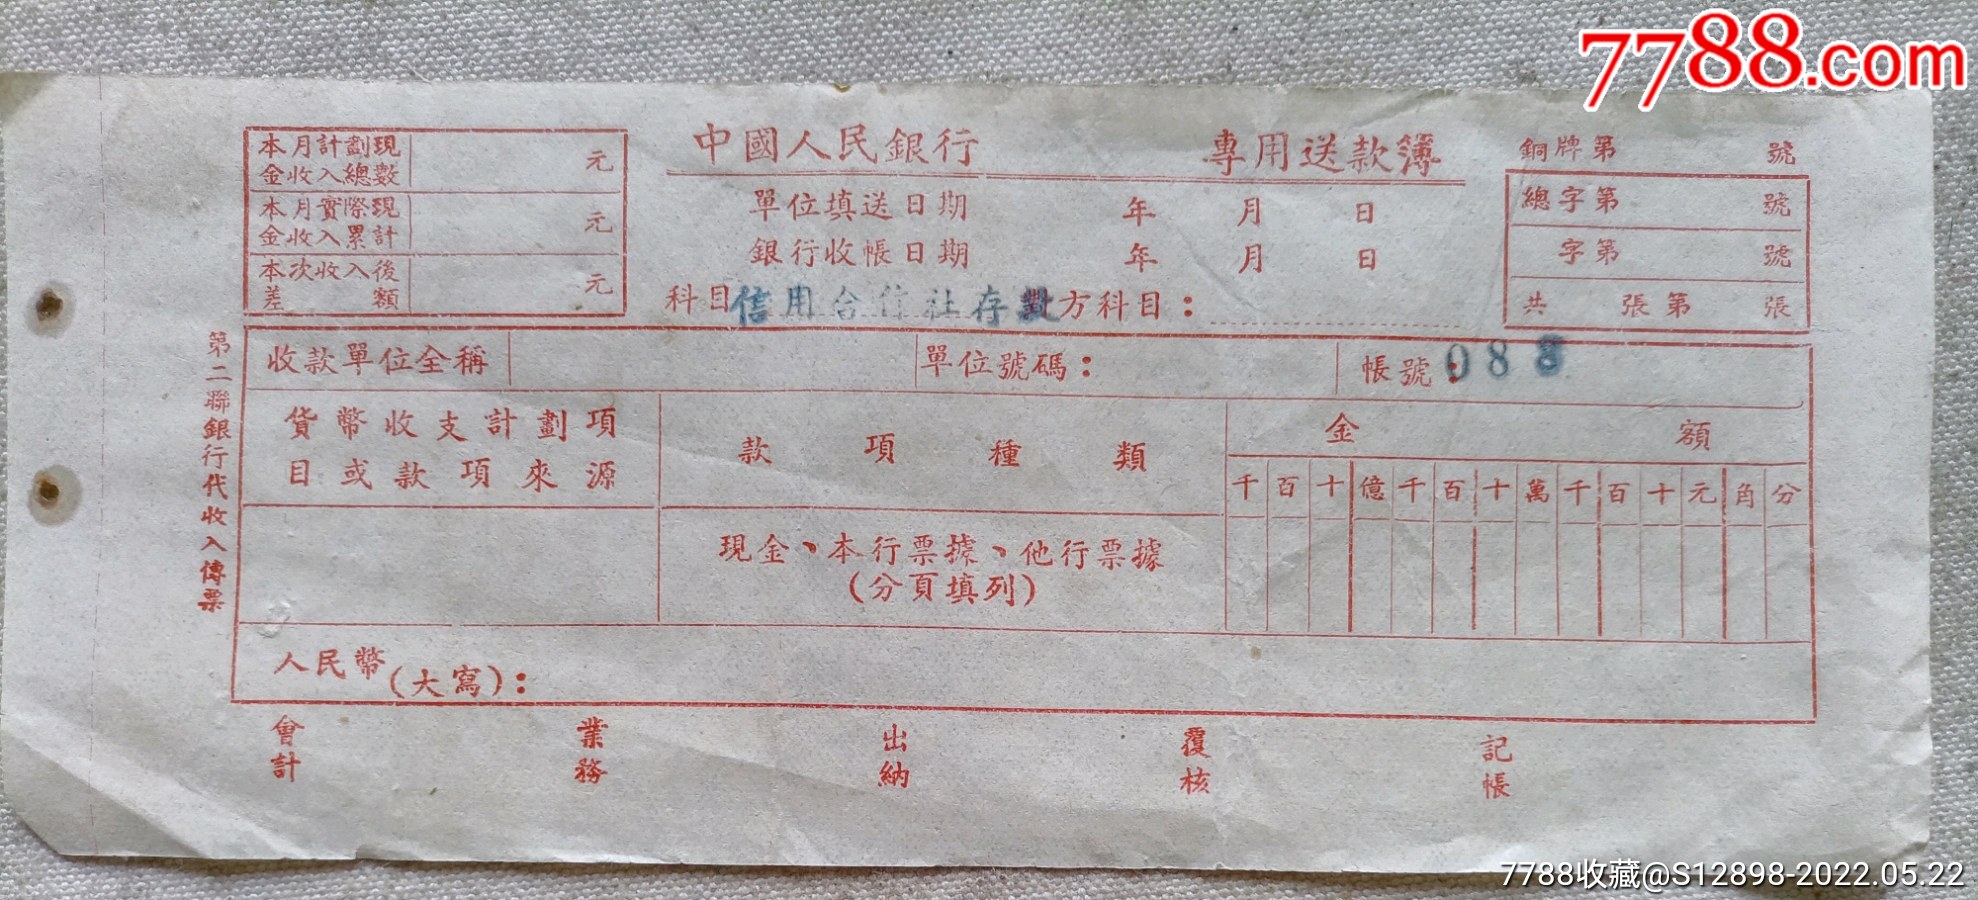 7788.com
中國人民銀行 專用送款簿
銅牌第 號
本月計劃現金收入總數 元
本月實際現金收入累計 元
本次收入後差額 元
單位填送日期 年 月 日
銀行收帳日期 年 月 日
科目信用合作社存款對方科目：
總字第 號
字第 號
共 張第 張
第二聯銀行代收入傳票
收款單位全稱 單位號碼： 帳號：088
貨幣收支計劃項目或款項來源
款項種類
金額
千百十億千百十萬千百十元角分
現金、本行票據、他行票據
(分頁填列)
人民幣(大寫)：
會計 業務 出納 覆核 記帳
7788收藏@S12898-2022.05.22